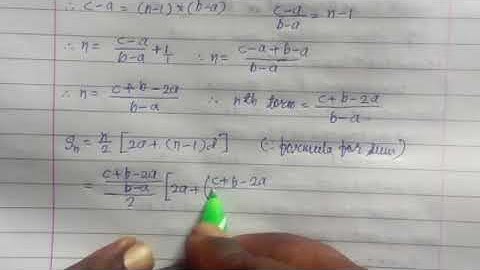 ∴ c-a = (n-1)×(b-a) c-a/b-a = n-1
∴ n = c-a/b-a + 1/1 ∴ n = c-a+b-a/b-a
∴ n = c+b-2a/b-a ∴ nth term = c+b-2a/b-a
Sn = n/2 [2a+(n-1)d] (∵ formula for sum)
= c+b-2a/b-a/2 [2a+(c+b-2a